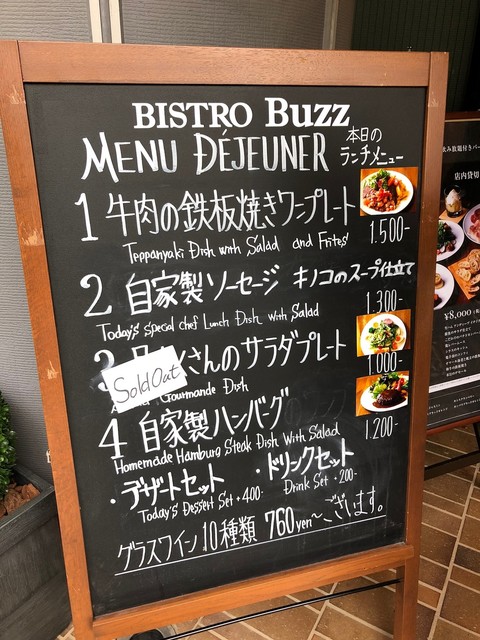 BISTRO BUZZ
MENU DÉJEUNER
本日の
ランチメニュー
1 牛肉の鉄板焼きワンプレート
Teppanyaki Dish with Salad and Frites
1.500-
2 自家製ソーセージ キノコのスープ仕立て
Today's special chef Lunch Dish with Salad
1.300-
3 さんのサラダプレート
Sold Out
Gourmande Dish
1.000-
4 自家製ハンバーグ
Homemade Hamburg Steak Dish With Salad
1.200-
・デザートセット ・ドリンクセット
Today's Dessert Set +400- Drink Set +200-
グラスワイン10種類 760yen〜ございます。
店内貸切
¥8,000